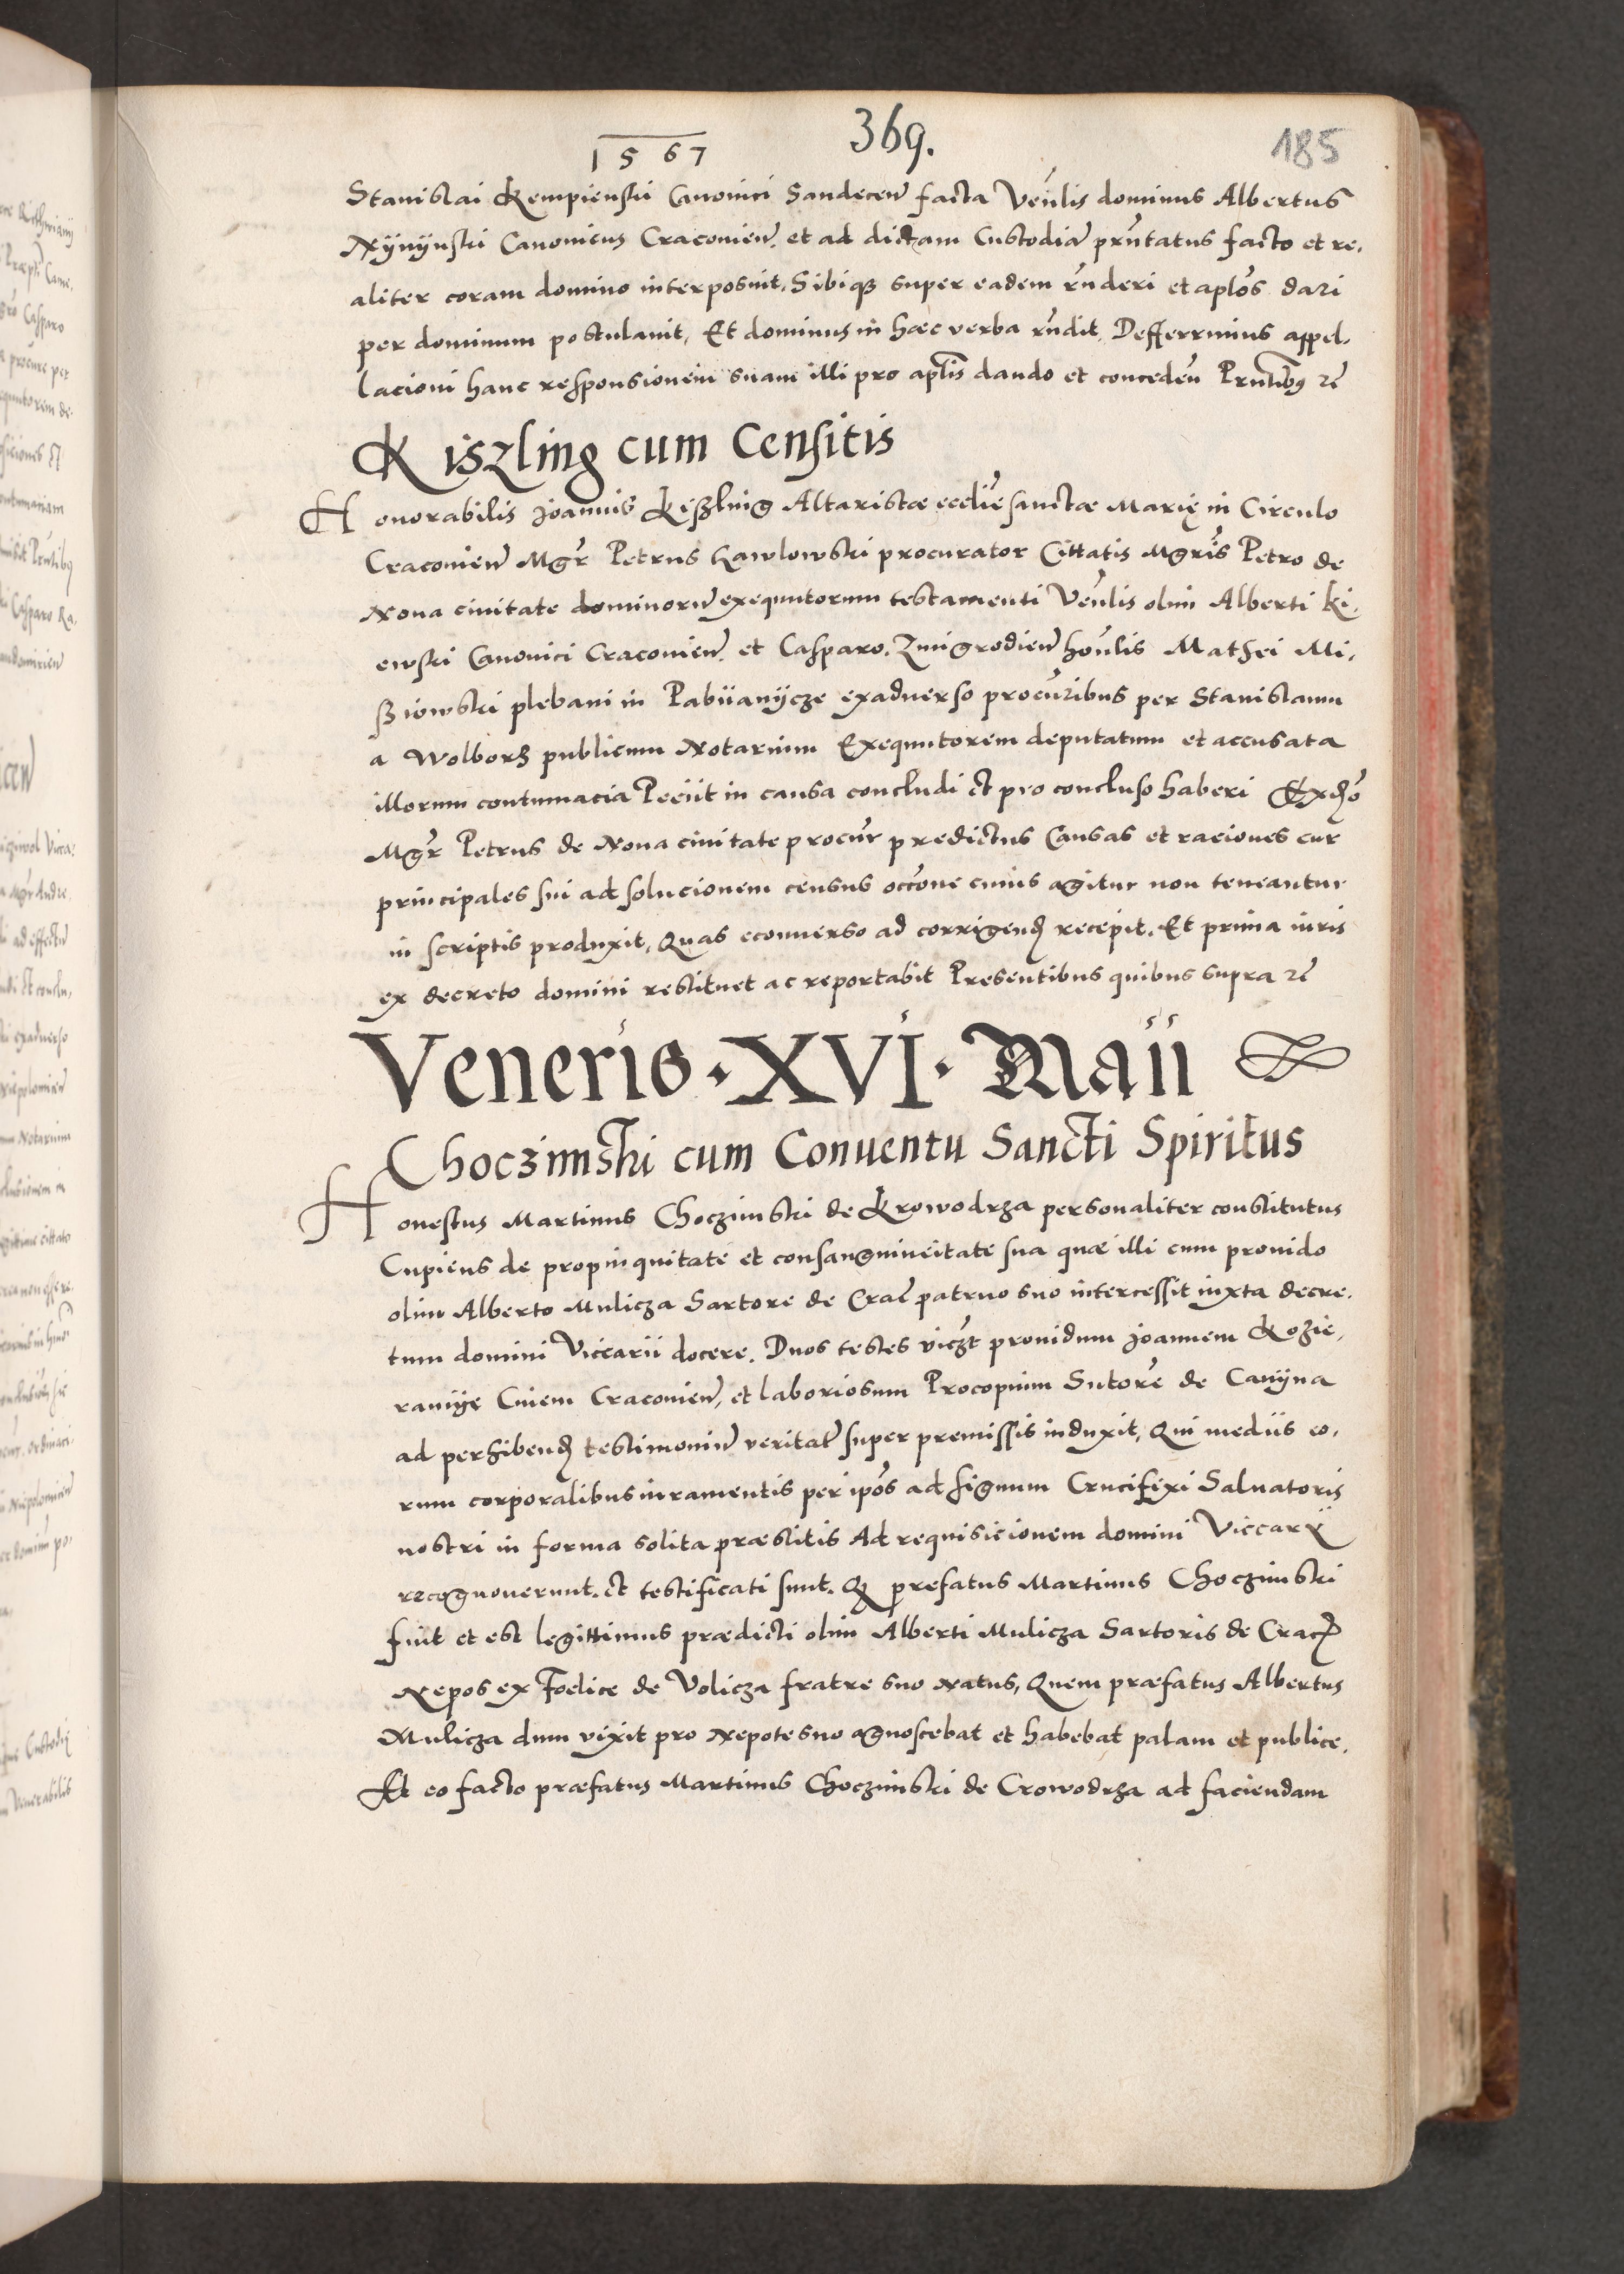 1567
369.
185
Stanislai Kempienski Canonici Sandecen̄ facta Ven̄lis dominus Albertus
Nÿnÿnski Canonicus Cracouien̄. et ad dictam Custodiā pn̄tatus facto et re,
aliter coram domino interposuit, Sibiqȝ super eadem rn̄deri et aplōs dari
per dominum postulauit, Et dominus in hæc verba rn̄dit. Defferrmius appel,
lacioni hanc responsionem suam illi pro aplīs dando et conceden̄ Prn̄tibꝰ rc̄
Kiszling cum Censitis
Honorabilis Joannis Kiszling Altaristæ eccliē sanctæ Marię in Circulo
Cracouien̄ Mgr̄ Petrus Hawlowski procurator Cittatis Mgrīs Petro de
Noua ciuitate dominorū exequutorum testamenti Ven̄lis olim Alberti Ki,
ewski Canonici Cracouien̄. et Casparo. Zmigrodien̄ hon̄lis Mathei Mi,
sziowski plebani in Pabiianÿcze exaduerso procūribus per Stanislaum
a Wolborz publicum Notarium Exequutorem deputatum et accusata
illorum contumacia Peciit in causa concludi et pro concluso haberi Exaͦ
Mgr̄ Petrus de Noua ciuitate procur̄ predictus Causas et raciones cur
principales sui ad solucionem census occōne cuius agitur non teneantur
in scriptis produxit, Quas econuerso ad corrigenđ recepit. Et prima iuris
ex decreto domini restituet ac reportabit Presentibus quibus supra rc̄
Veneris · XVI · Maii
Choczimski cum Conuentu Sancti Spiritus
Honestus Martinus Choczimski de Krowodrza personaliter constitutus
Cupiens de propinquitate et consanguineitate sua quæ illi cum prouido
olim Alberto Mulicza Sartore de Crac̄ patruo suo intercessit iuxta decre,
tum domini Viccarii docere. Duos testes viczt̄ prouidum Joannem Kozie,
ramÿę Ciuem Cracouien̄, et laboriosum Procopium Sutorē de Canÿna
ad perhibenđ testimoniū veritat̄ super premissis induxit, Qui mediis eo,
rum corporalibus iuramentis per ipōs ad signum Crucifixi Saluatoris
nostri in forma solita præstitis Ad requisicionem domini Viccarÿ
recognouerunt. et testificati sunt. Qȝ prefatus Martinus Choczimski
fuit et est legittimus prædicti olim Alberti Mulicza Sartoris de Crac̄
Nepos ex Foelice de Volicza fratre suo natus, Quem præfatus Albertus
Mulicza dum vixit pro Nepote suo agnoscebat et habebat palam et publice.
Et eo facto præfatus Martinus Choczimski de Crowodrza ad faciendam